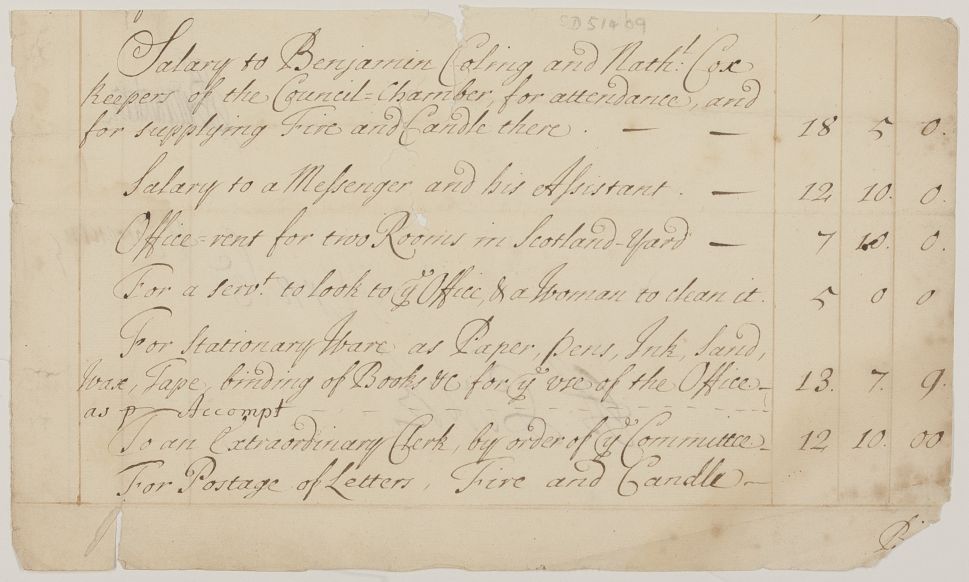 SD51409
Salary to Benjamin Coling and Nath:l Cox
keepers of the Council=Chamber, for attendance, and
for supplying Fire and Candle there . — — 18 5 0.
Salary to a Messenger and his Assistant . — 12 10. 0.
Office=rent for two Rooms in Scotland-Yard — 7 10. 0.
For a serv.t to look to ye Office, & a Woman to clean it. 5 0 0
For Stationary Ware as Paper, Pens, Ink, Sand,
Wax, Tape, binding of Books &c for ye vse of the Office - 13. 7. 9.
as p Accompt
To an Extraordinary Clerk, by order of ye Committee - 12 10. 00
For Postage of Letters, Fire and Candle -